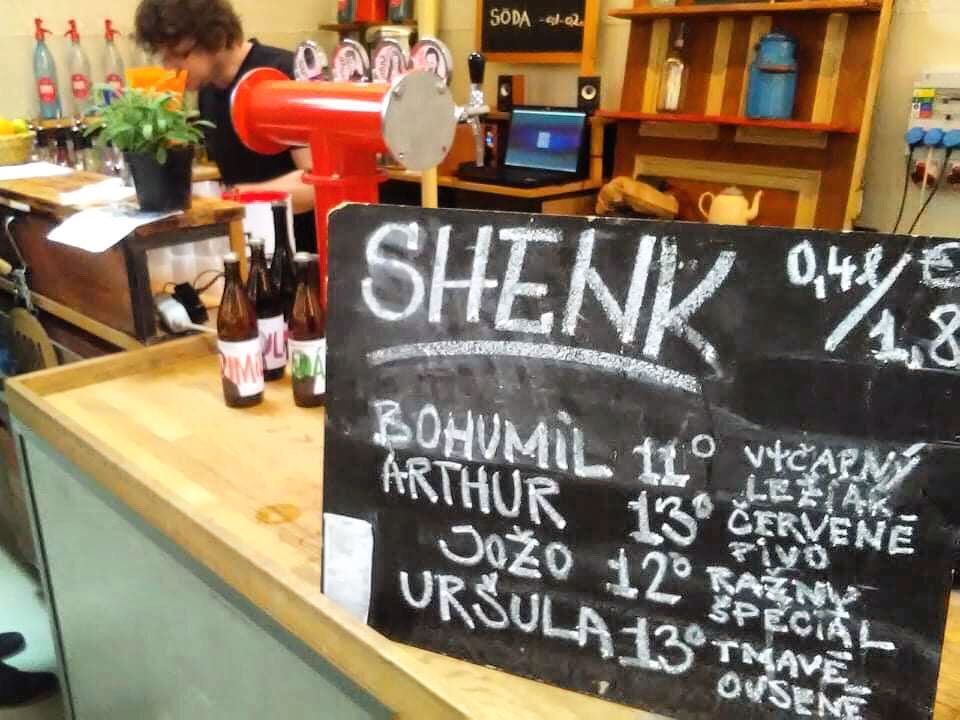 SÓDA
SHENK
0,4l/€
1,8
BOHUMIL 11° VÝČAPNÝ LEŽIAK
ARTHUR 13° ČERVENÉ PIVO
JOŽO 12° RAŽNÝ ŠPECIÁL
URŠULA 13° TMAVÉ OVSENÉ